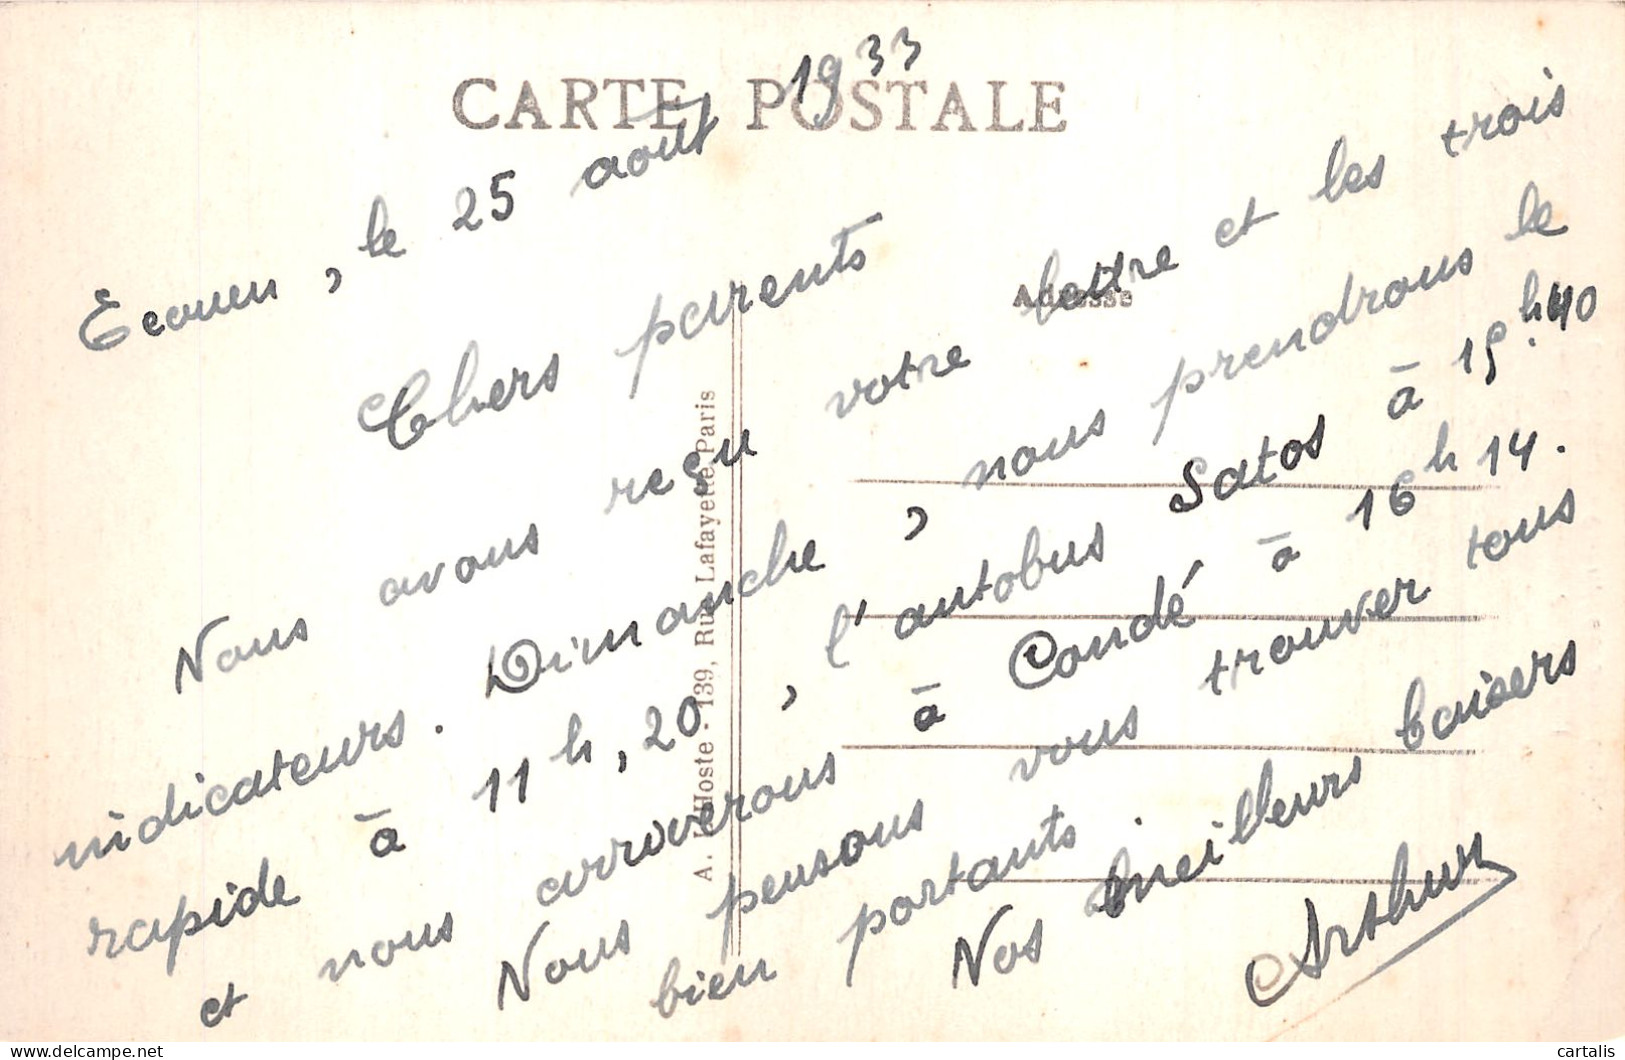 CARTE POSTALE
Ecouen, le 25 août 1933
Chers parents
Nous avons reçu votre lettre et les trois
indicateurs. Dimanche, nous prendrons le
rapide à 11h,20, l'autobus Satos à 15h.40
et nous arriverons à Condé à 16h14.
Nous pensons vous trouver tous
bien portants. Nos meilleurs baisers
Arthur
Adresse
A. L'Hoste - 139, Rue Lafayette, Paris
delcampe.net
cartalis